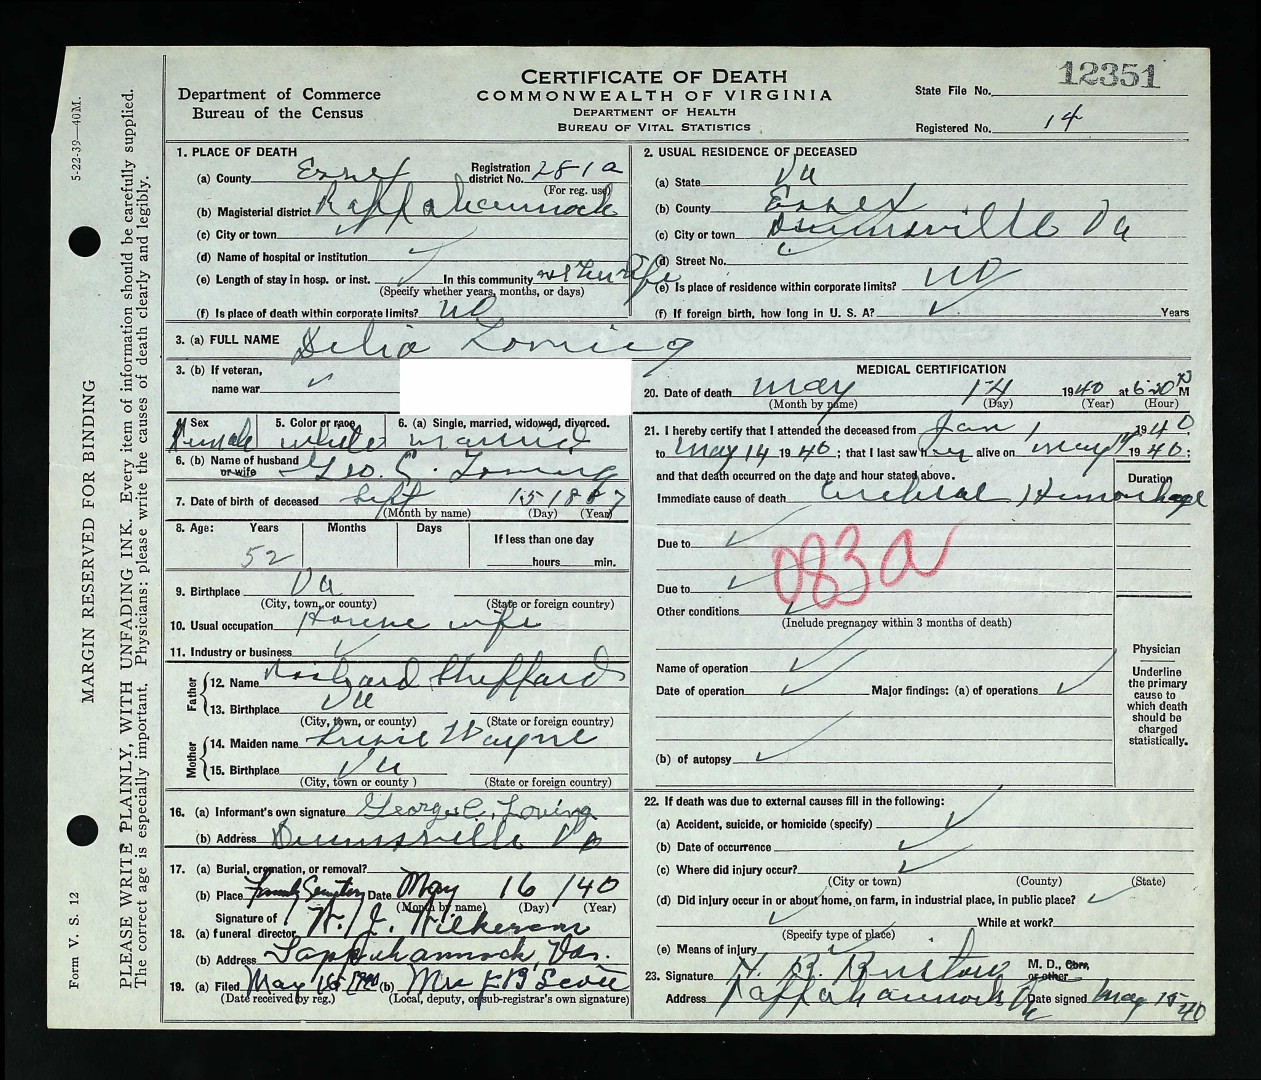 12351
CERTIFICATE OF DEATH
COMMONWEALTH OF VIRGINIA
DEPARTMENT OF HEALTH
BUREAU OF VITAL STATISTICS
Department of Commerce
Bureau of the Census
State File No.
Registered No. 14
5-22-39—40M.
MARGIN RESERVED FOR BINDING
Form V. S. 12
PLEASE WRITE PLAINLY, WITH UNFADING INK. Every item of information should be carefully supplied.
The correct age is especially important. Physicians: please write the causes of death clearly and legibly.
1. PLACE OF DEATH
(a) County Essex Registration district No. 281a
(For reg. use)
(b) Magisterial district Rappahannock
(c) City or town
(d) Name of hospital or institution
(e) Length of stay in hosp. or inst. In this community life
(Specify whether years, months, or days)
(f) Is place of death within corporate limits? no
2. USUAL RESIDENCE OF DECEASED
(a) State Va
(b) County Essex
(c) City or town Dunnsville Va
(d) Street No.
(e) Is place of residence within corporate limits? no
(f) If foreign birth, how long in U. S. A.? Years
3. (a) FULL NAME Delia Loving
3. (b) If veteran,
name war
4. Sex Female
5. Color or race white
6. (a) Single, married, widowed, divorced. married
6. (b) Name of husband or wife Geo. C. Loving
7. Date of birth of deceased Sept 15 1887
(Month by name) (Day) (Year)
8. Age: Years Months Days If less than one day
52 hours min.
9. Birthplace Va
(City, town, or county) (State or foreign country)
10. Usual occupation House wife
11. Industry or business
Father
12. Name Richard Sheffard
13. Birthplace Va
(City, town, or county) (State or foreign country)
Mother
14. Maiden name Wayne
15. Birthplace Va
(City, town or county ) (State or foreign country)
16. (a) Informant's own signature George C. Loving
(b) Address Dunnsville Va
17. (a) Burial, cremation, or removal?
(b) Place Family Cemetery Date May 16 / 40
(Month by name) (Day) (Year)
18. Signature of
(a) funeral director W. J. Wilkerson
(b) Address Tappahannock, Va.
19. (a) Filed May (b) Mrs B Scott
(Date received by reg.) (Local, deputy, or sub-registrar's own signature)
MEDICAL CERTIFICATION
20. Date of death May 14 1940 at 6:20 P M
(Month by name) (Day) (Year) (Hour)
21. I hereby certify that I attended the deceased from Jan 1 1940
to May 14 1940; that I last saw her alive on May 14 1940;
and that death occurred on the date and hour stated above.
Duration
Immediate cause of death Cerebral Hemorrhage
Due to
083a
Due to
Other conditions
(Include pregnancy within 3 months of death)
Name of operation
Date of operation Major findings: (a) of operations
(b) of autopsy
Physician
Underline the primary cause to which death should be charged statistically.
22. If death was due to external causes fill in the following:
(a) Accident, suicide, or homicide (specify)
(b) Date of occurrence
(c) Where did injury occur?
(City or town) (County) (State)
(d) Did injury occur in or about home, on farm, in industrial place, in public place?
While at work?
(Specify type of place)
(e) Means of injury
23. Signature M. D., Cor., or other
Address Tappahannock Va Date signed May 15 40